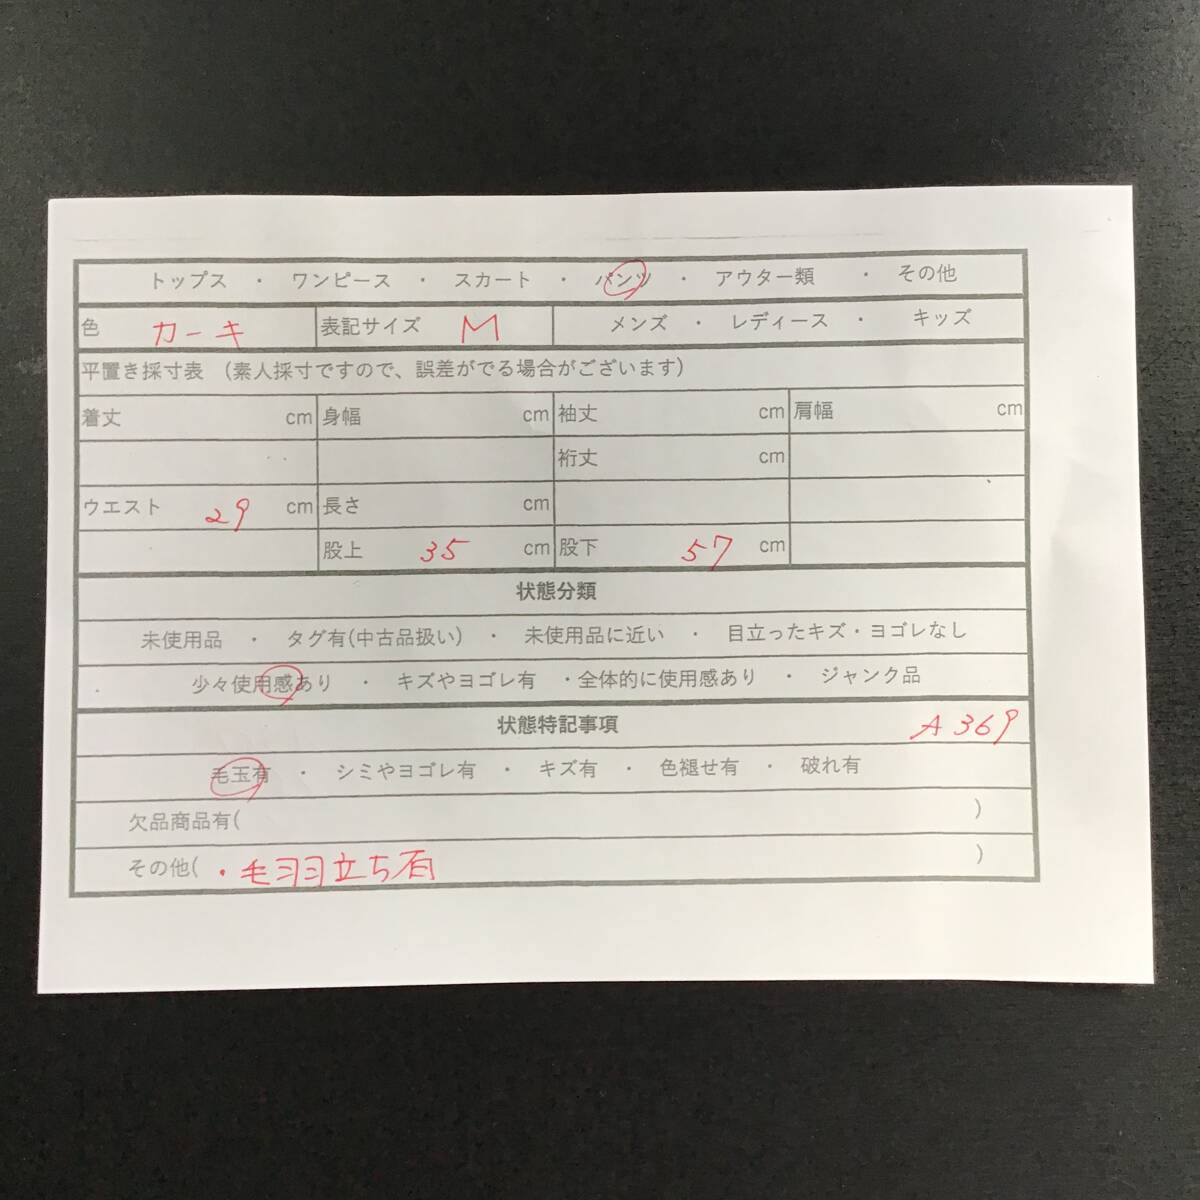 トップス ・ ワンピース ・ スカート ・ パンツ ・ アウター類 ・ その他
色 カーキ 表記サイズ M メンズ ・ レディース ・ キッズ
平置き採寸表 (素人採寸ですので、誤差がでる場合がございます)
着丈 cm 身幅 cm 袖丈 cm 肩幅 cm
裄丈 cm
ウエスト 29 cm 長さ cm
股上 35 cm 股下 57 cm
状態分類
未使用品 ・ タグ有(中古品扱い) ・ 未使用品に近い ・ 目立ったキズ・ヨゴレなし
少々使用感あり ・ キズやヨゴレ有 ・全体的に使用感あり ・ ジャンク品
状態特記事項 A369
毛玉有 ・ シミやヨゴレ有 ・ キズ有 ・ 色褪せ有 ・ 破れ有
欠品商品有( )
その他( ・毛羽立ち有 )